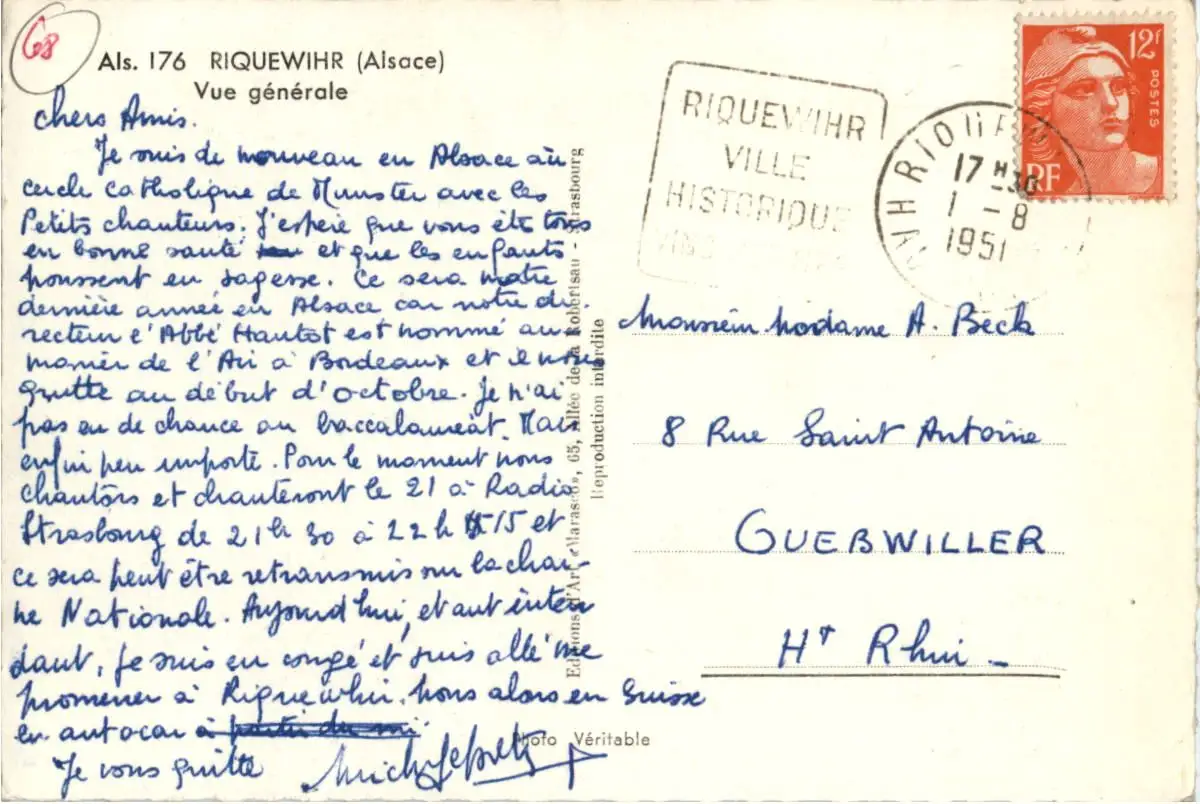 68
Als. 176 RIQUEWIHR (Alsace)
Vue générale
chers Amis.
Je suis de nouveau en Alsace au
cercle catholique de Munster avec les
Petits chanteurs. J'espère que vous êtes tous
en bonne santé et que les enfants
poussent en sagesse. Ce sera notre
dernière année en Alsace car notre di-
recteur l'Abbé Hautot est nommé au
manier de l'Air à Bordeaux et il nous
quitte au début d'octobre. Je n'ai
pas eu de chance au baccalauréat. Mais
enfin peu importe. Pour le moment nous
chantons et chanteront le 21 à Radio
Strasbourg de 21h 30 à 22h 15 et
ce sera peut être retransmis sur la chai-
ne Nationale. Aujourd'hui, étant inten
dant, je suis en congé et suis allé me
promener à Riquewihr. Nous alors en Suisse
en autocar à partir du
Je vous quitte
Editions d'Art «Marasco», 65, Allée de la Robertsau - Strasbourg
Reproduction interdite
Photo Véritable
RIQUEWIHR
VILLE
HISTORIQUE
VINS
RIQUEWIHR
17 H 30
1 - 8
1951
12f
POSTES
RF
Monsieur Madame A. Beck
8 Rue Saint Antoine
GUEBWILLER
Ht Rhin